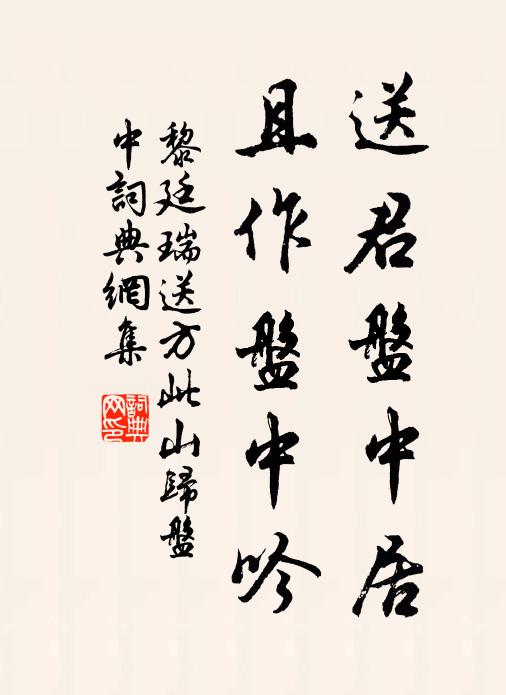 送君盤中居
且作盤中吟
黎廷瑞送方此山歸盤
中詞典網集
詞典
网印